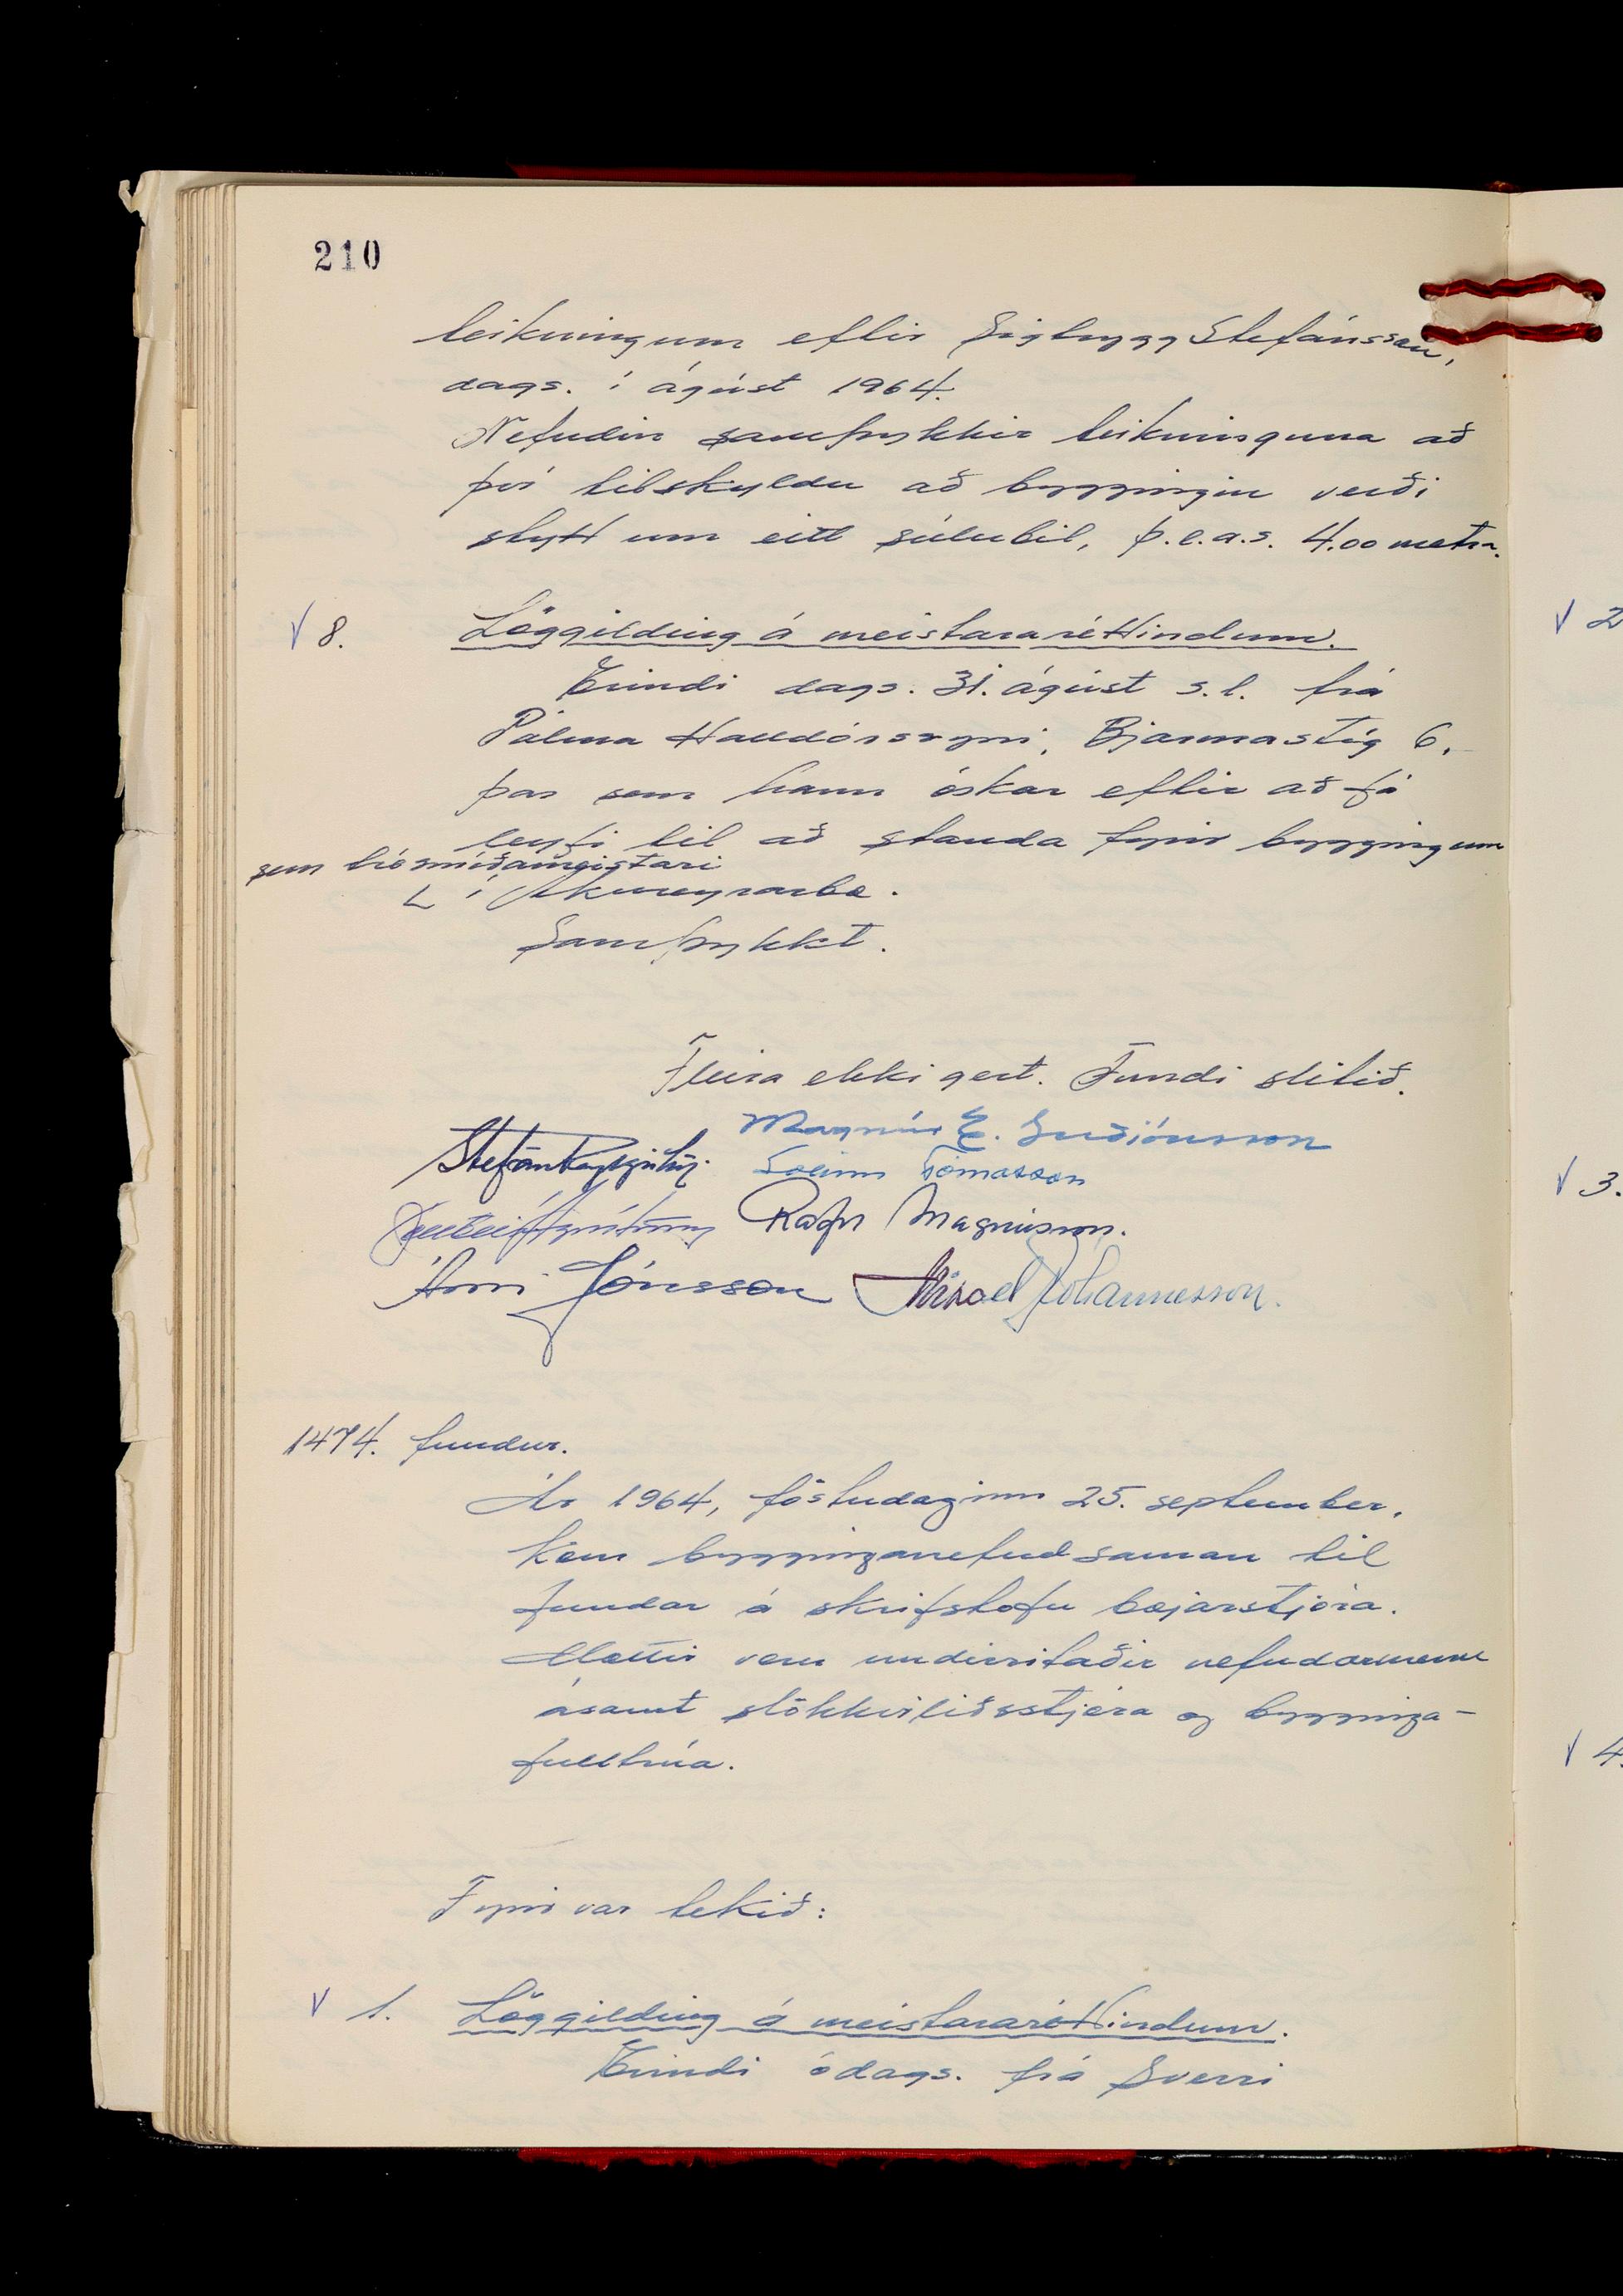 210
teikningum eftir Sigtrygg Stefánsson,
dags. í ágúst 1964.
Nefndin samþykkir teikninguna að
því tilskyldu að byggingin verði
stytt um eitt súlubil, þ.e.a.s. 4.00 metra.
V 8. Löggilding á meistararéttindum.
Erindi dags. 31. ágúst s.l. frá
Pálma Halldórssyni, Bjarmastíg 6,
þar sem hann óskar eftir að fá
leyfi til að standa fyrir byggingum
sem trésmíðameistari
í Akureyrarbæ.
Samþykkt.
Fleira ekki gert. Fundi slitið.
Magnús E. Guðjónsson
Stefán Reykjalín Sveinn Tómasson
Rafn Magnússon.
Árni Jónsson Mikael Jóhannesson.
1474. fundur.
Ár 1964, föstudaginn 25. september,
kom bygginganefnd saman til
fundar á skrifstofu bæjarstjóra.
Mættir voru undirritaðir nefndarmenn
ásamt slökkviliðsstjóra og bygginga-
fulltrúa.
Fyrir var tekið:
V 1. Löggilding á meistararéttindum.
Erindi ódags. frá Sverri
V 2
V 3.
V 4.